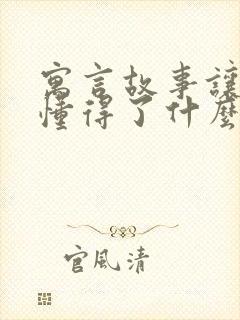 寓言故事讓
懂得了什麼
官風清